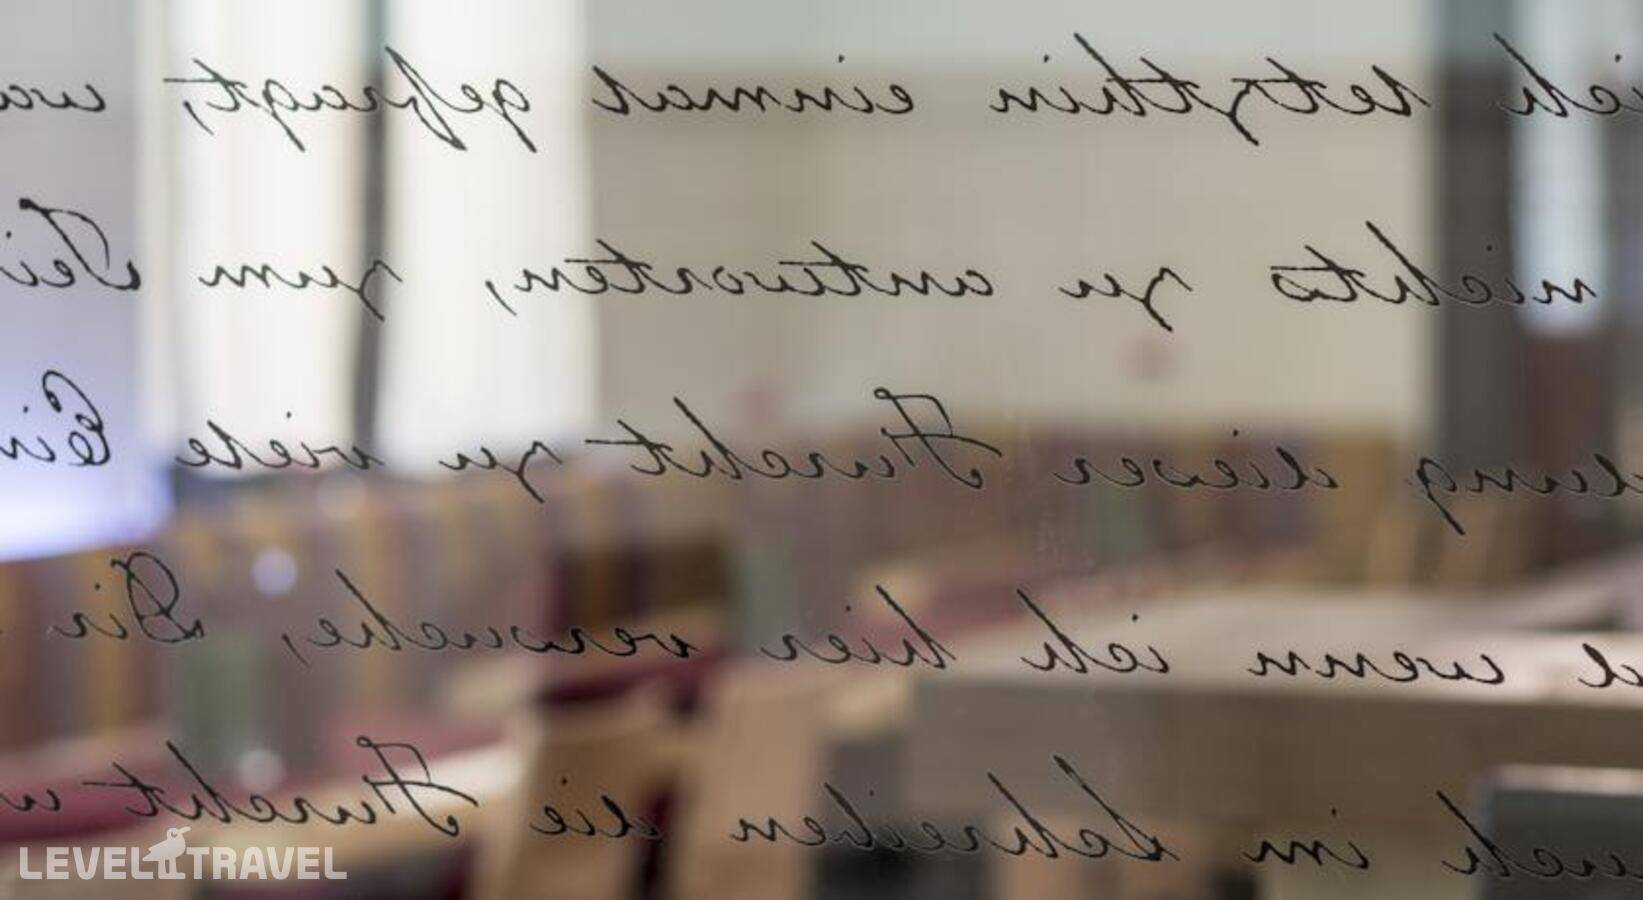 ich letzthin einmal gefragt, wa
nichts zu antworten, zum Tei
dung dieser Furcht zu viele Ein
d wenn ich hier versuche, Dir
uch im Schreiben die Furcht u
LEVEL TRAVEL